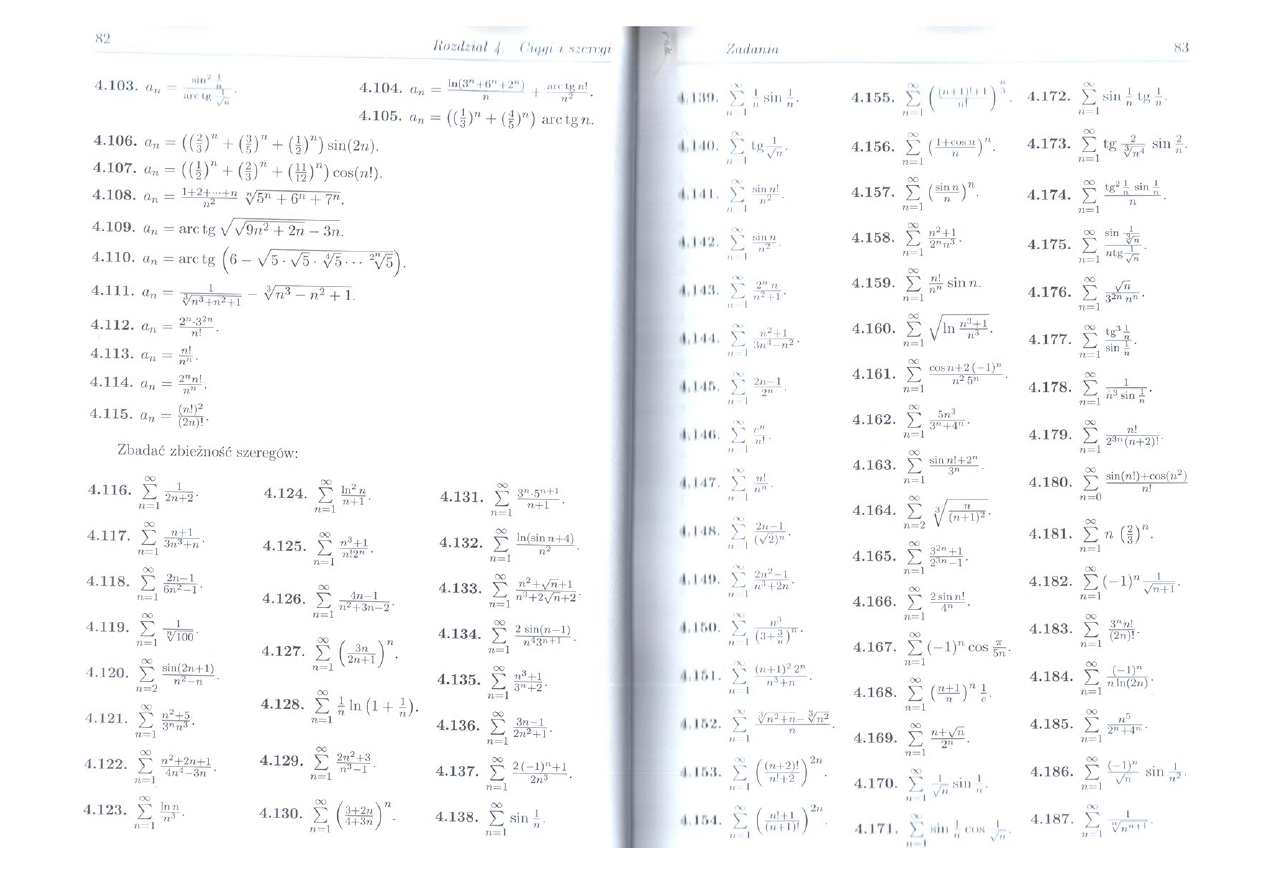 82
Rozdział 4. Ciągi i szeregi
4.103. a_n = \frac{\sin^2 \frac{1}{n}}{\text{arc tg} \frac{1}{\sqrt{n}}}.
4.104. a_n = \frac{\ln(3^n+6^n+2^n)}{n} + \frac{\text{arc tg}\, n!}{n^2}.
4.105. a_n = ((\frac{1}{3})^n + (\frac{4}{5})^n) arc tg n.
4.106. a_n = ((\frac{2}{3})^n + (\frac{3}{5})^n + (\frac{1}{2})^n) sin(2n).
4.107. a_n = ((\frac{1}{2})^n + (\frac{2}{3})^n + (\frac{11}{12})^n) cos(n!).
4.108. a_n = \frac{1+2+\cdots+n}{n^2} \sqrt[n]{5^n + 6^n + 7^n}.
4.109. a_n = arc tg \sqrt{\sqrt{9n^2 + 2n} - 3n}.
4.110. a_n = arc tg (6 - \sqrt{5 \cdot \sqrt{5} \cdot \sqrt[4]{5} \cdots \sqrt[2^n]{5}}).
4.111. a_n = \frac{1}{\sqrt[3]{n^3+n^2+1}} - \sqrt[3]{n^3 - n^2 + 1}.
4.112. a_n = \frac{2^n \cdot 3^{2n}}{n!}.
4.113. a_n = \frac{n!}{n^n}.
4.114. a_n = \frac{2^n n!}{n^n}.
4.115. a_n = \frac{(n!)^2}{(2n)!}.
Zbadać zbieżność szeregów:
4.116. \sum_{n=1}^{\infty} \frac{1}{2n+2}.
4.117. \sum_{n=1}^{\infty} \frac{n+1}{3n^3+n}.
4.118. \sum_{n=1}^{\infty} \frac{2n-1}{6n^2-1}.
4.119. \sum_{n=1}^{\infty} \frac{1}{\sqrt[n]{100}}.
4.120. \sum_{n=2}^{\infty} \frac{\sin(2n+1)}{n^2-n}.
4.121. \sum_{n=1}^{\infty} \frac{n^2+5}{3^n n^3}.
4.122. \sum_{n=1}^{\infty} \frac{n^2+2n+1}{4n^4-3n}.
4.123. \sum_{n=1}^{\infty} \frac{\ln n}{n^3}.
4.124. \sum_{n=1}^{\infty} \frac{\ln^2 n}{n+1}.
4.125. \sum_{n=1}^{\infty} \frac{n^3+1}{n!2^n}.
4.126. \sum_{n=1}^{\infty} \frac{4n-1}{n^2+3n-2}.
4.127. \sum_{n=1}^{\infty} (\frac{3n}{2n+1})^n.
4.128. \sum_{n=1}^{\infty} \frac{1}{n} ln (1 + \frac{1}{n}).
4.129. \sum_{n=1}^{\infty} \frac{2n^2+3}{n^3-1}.
4.130. \sum_{n=1}^{\infty} (\frac{3+2n}{4+3n})^n.
4.131. \sum_{n=1}^{\infty} \frac{3^n \cdot 5^{n+1}}{n+1}.
4.132. \sum_{n=1}^{\infty} \frac{\ln(\sin n+4)}{n^2}.
4.133. \sum_{n=1}^{\infty} \frac{n^2+\sqrt{n}+1}{n^3+2\sqrt{n}+2}.
4.134. \sum_{n=1}^{\infty} \frac{2\sin(n-1)}{n^4 3^{n+1}}.
4.135. \sum_{n=1}^{\infty} \frac{n^3+1}{3^n+2}.
4.136. \sum_{n=1}^{\infty} \frac{3n-1}{2n^2+1}.
4.137. \sum_{n=1}^{\infty} \frac{2(-1)^n+1}{2n^3}.
4.138. \sum_{n=1}^{\infty} sin \frac{1}{n}.
Zadania
83
4.139. \sum_{n=1}^{\infty} \frac{1}{n} sin \frac{1}{n}.
4.140. \sum_{n=1}^{\infty} tg \frac{1}{\sqrt{n}}.
4.141. \sum_{n=1}^{\infty} \frac{\sin n!}{n^2}.
4.142. \sum_{n=1}^{\infty} \frac{\sin n}{n^2}.
4.143. \sum_{n=1}^{\infty} \frac{2^n n}{n^2+1}.
4.144. \sum_{n=1}^{\infty} \frac{n^2+1}{3n^4-n^2}.
4.145. \sum_{n=1}^{\infty} \frac{2n-1}{2^n}.
4.146. \sum_{n=1}^{\infty} \frac{e^n}{n!}.
4.147. \sum_{n=1}^{\infty} \frac{n!}{n^n}.
4.148. \sum_{n=1}^{\infty} \frac{2n-1}{(\sqrt{2})^n}.
4.149. \sum_{n=1}^{\infty} \frac{2n^2-1}{n^3+2n}.
4.150. \sum_{n=1}^{\infty} \frac{n^3}{(3+\frac{3}{n})^n}.
4.151. \sum_{n=1}^{\infty} \frac{(n+1)^2 2^n}{n^3+n}.
4.152. \sum_{n=1}^{\infty} \frac{\sqrt[3]{n^2+n}-\sqrt[3]{n^2}}{n}.
4.153. \sum_{n=1}^{\infty} (\frac{(n+2)!}{n!+2})^{2n}.
4.154. \sum_{n=1}^{\infty} (\frac{n!+1}{(n+1)!})^{2n}.
4.155. \sum_{n=1}^{\infty} (\frac{(n+1)!+1}{n!})^{\frac{n}{3}}.
4.156. \sum_{n=1}^{\infty} (\frac{1+\cos n}{n})^n.
4.157. \sum_{n=1}^{\infty} (\frac{\sin n}{n})^n.
4.158. \sum_{n=1}^{\infty} \frac{n^2+1}{2^n n^3}.
4.159. \sum_{n=1}^{\infty} \frac{n!}{n^n} sin n.
4.160. \sum_{n=1}^{\infty} \sqrt{\ln \frac{n^3+1}{n^3}}.
4.161. \sum_{n=1}^{\infty} \frac{\cos n+2(-1)^n}{n^2 5^n}.
4.162. \sum_{n=1}^{\infty} \frac{5n^3}{3^n+4^n}.
4.163. \sum_{n=1}^{\infty} \frac{\sin n!+2^n}{3^n}.
4.164. \sum_{n=2}^{\infty} \sqrt[3]{\frac{n}{(n+1)^2}}.
4.165. \sum_{n=1}^{\infty} \frac{3^{2n}+1}{2^{3n}-1}.
4.166. \sum_{n=1}^{\infty} \frac{2\sin n!}{4^n}.
4.167. \sum_{n=1}^{\infty} (-1)^n cos \frac{\pi}{5n}.
4.168. \sum_{n=1}^{\infty} (\frac{n+1}{n})^n \frac{1}{e}.
4.169. \sum_{n=1}^{\infty} \frac{n+\sqrt{n}}{2^n}.
4.170. \sum_{n=1}^{\infty} \frac{1}{\sqrt{n}} sin \frac{1}{n}.
4.171. \sum_{n=1}^{\infty} sin \frac{1}{n} cos \frac{1}{\sqrt{n}}.
4.172. \sum_{n=1}^{\infty} sin \frac{1}{n} tg \frac{1}{n}.
4.173. \sum_{n=1}^{\infty} tg \frac{2}{\sqrt[3]{n^4}} sin \frac{2}{n}.
4.174. \sum_{n=1}^{\infty} \frac{\text{tg}^2 \frac{1}{n} \sin \frac{1}{n}}{n}.
4.175. \sum_{n=1}^{\infty} \frac{\sin \frac{1}{\sqrt[3]{n}}}{n \text{tg} \frac{1}{\sqrt{n}}}.
4.176. \sum_{n=1}^{\infty} \frac{\sqrt{n}}{3^{2n} n^n}.
4.177. \sum_{n=1}^{\infty} \frac{\text{tg}^3 \frac{1}{n}}{\sin \frac{1}{n}}.
4.178. \sum_{n=1}^{\infty} \frac{1}{n^3 \sin \frac{1}{n}}.
4.179. \sum_{n=1}^{\infty} \frac{n!}{2^{3n}(n+2)!}.
4.180. \sum_{n=0}^{\infty} \frac{\sin(n!)+\cos(n^2)}{n!}.
4.181. \sum_{n=1}^{\infty} n (\frac{2}{3})^n.
4.182. \sum_{n=1}^{\infty} (-1)^n \frac{1}{\sqrt{n+1}}.
4.183. \sum_{n=1}^{\infty} \frac{3^n n!}{(2n)!}.
4.184. \sum_{n=1}^{\infty} \frac{(-1)^n}{n \ln(2n)}.
4.185. \sum_{n=1}^{\infty} \frac{n^5}{2^n+4^n}.
4.186. \sum_{n=1}^{\infty} \frac{(-1)^n}{\sqrt{n}} sin \frac{1}{n^2}.
4.187. \sum_{n=1}^{\infty} \frac{1}{\sqrt[n]{n^{n+1}}}.